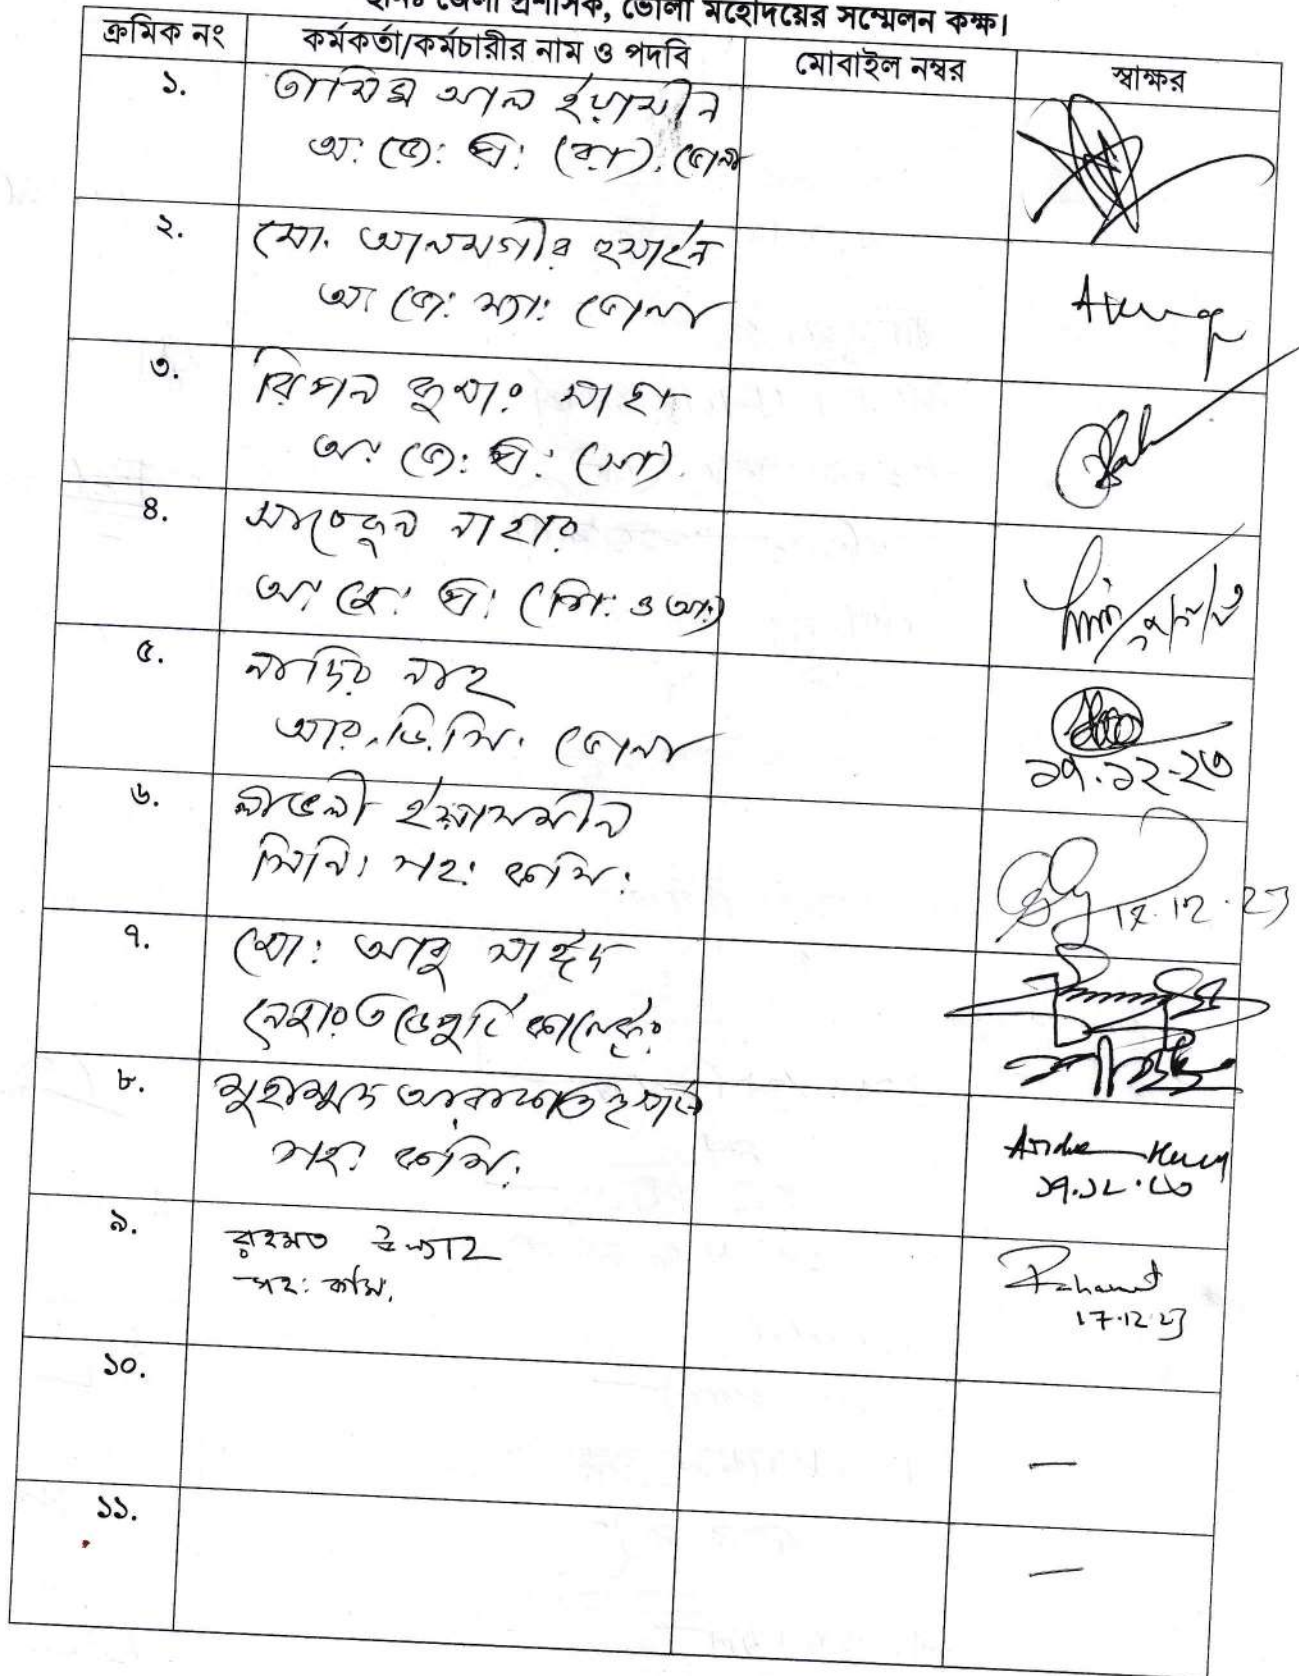 স্থানঃ জেলা প্রশাসক, ভোলা মহোদয়ের সম্মেলন কক্ষ।
ক্রমিক নং কর্মকর্তা/কর্মচারীর নাম ও পদবি মোবাইল নম্বর স্বাক্ষর
১. তামিম আল ইয়ামীন
অ: জে: প্র: (রা). ভোলা
২. মো. আলমগীর হুসাইন
অ: জে: ম্যা: ভোলা
৩. রিপন কুমার সাহা
অ: জে: প্র: (সা).
৪. নাহার
অ: জে: প্র: (শি: ও আ:)
৫. নাদির শাহ
আর.ডি.সি. ভোলা
১৭.১২-২৩
৬. লাভলী ইয়াসমীন
সিনি: সহ: কমি:
17.12.23
৭. মো: আবু সাঈদ
নেজারত ডেপুটি কালেক্টর
৮. মুহাম্মদ আরাফাত হুসাইন
সহ: কমি:
১৭.১২.২৩
৯. রহমত উল্যাহ
সহ: কমি.
Rahamat
17.12.23
১০. —
১১. —